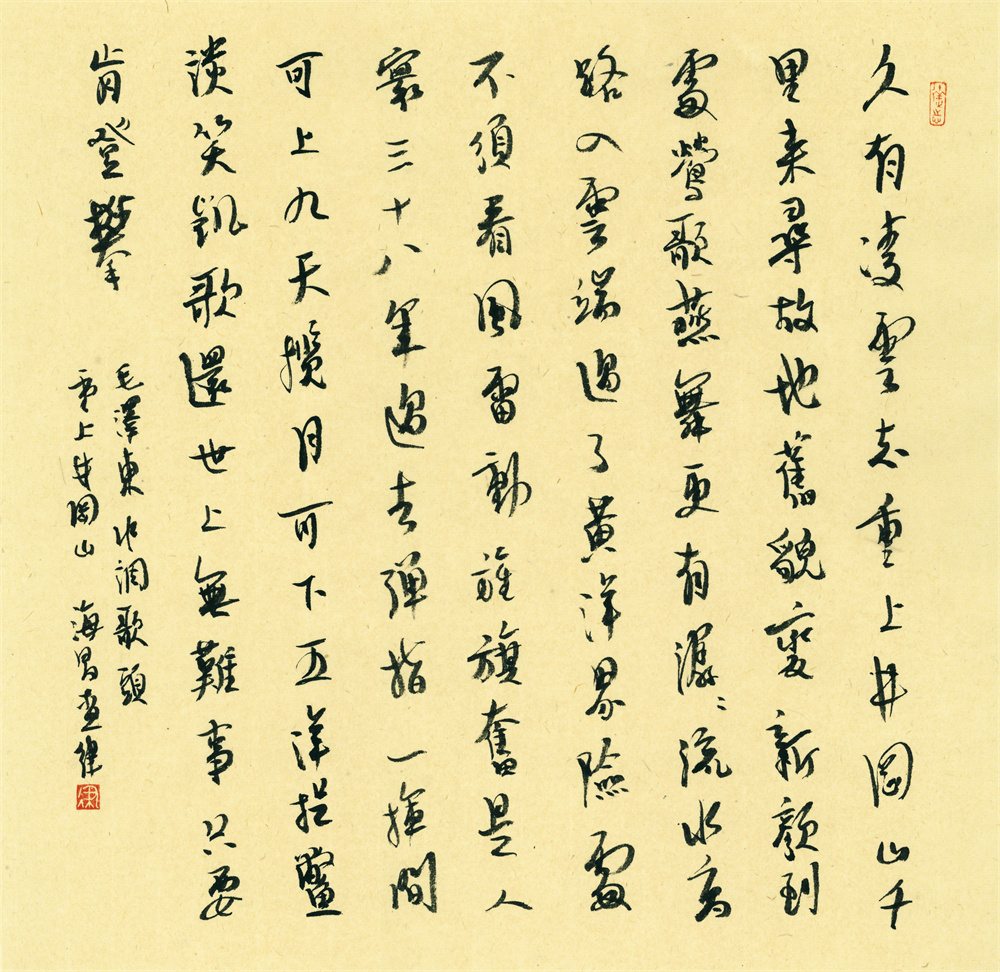 久有凌雲志重上井岡山千
里来尋故地舊貌變新顏到
處鶯歌燕舞更有潺〻流水高
路入雲端過了黃洋界險處
不須看風雷動旌旗奮是人
寰三十八年過去彈指一揮間
可上九天攬月可下五洋捉鱉
談笑凱歌還世上無難事只要
肯登攀
毛澤東水調歌頭
重上井岡山 海昌查律